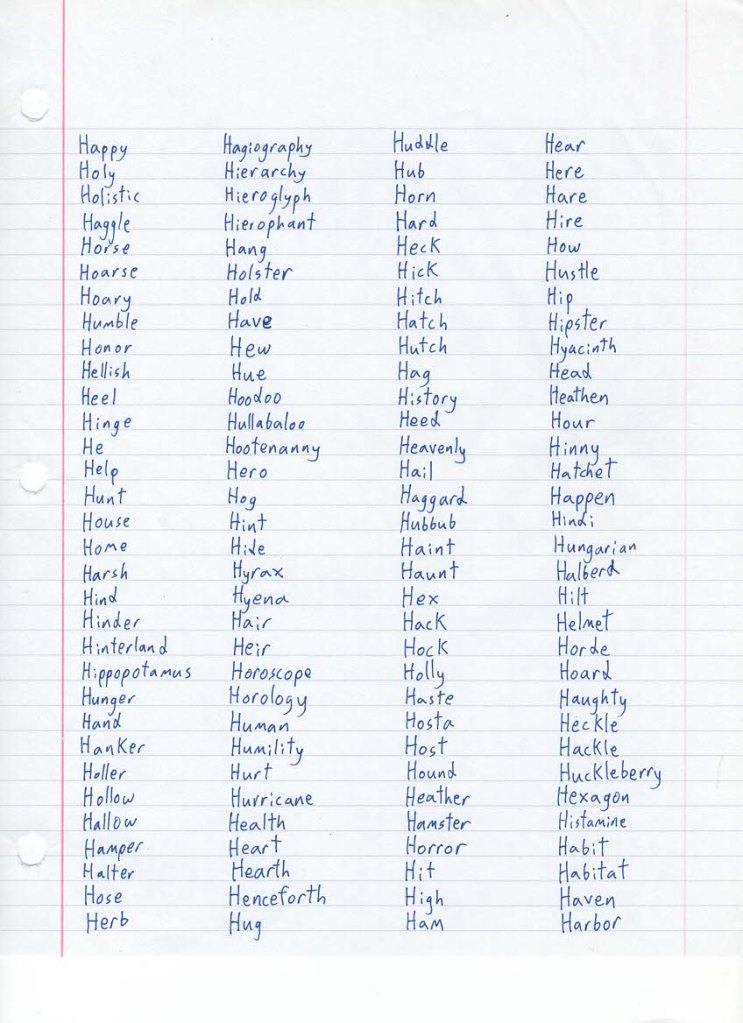 Happy Hagiography Huddle Hear
Holy Hierarchy Hub Here
Holistic Hieroglyph Horn Hare
Haggle Hierophant Hard Hire
Horse Hang Heck How
Hoarse Holster Hick Hustle
Hoary Hold Hitch Hip
Humble Have Hatch Hipster
Honor Hew Hutch Hyacinth
Hellish Hue Hag Head
Heel Hoodoo History Heathen
Hinge Hullabaloo Heed Hour
He Hootenanny Heavenly Hinny
Help Hero Hail Hatchet
Hunt Hog Haggard Happen
House Hint Hubbub Hindi
Home Hide Haint Hungarian
Harsh Hyrax Haunt Halberd
Hind Hyena Hex Hilt
Hinder Hair Hack Helmet
Hinterland Heir Hock Horde
Hippopotamus Horoscope Holly Hoard
Hunger Horology Haste Haughty
Hand Human Hosta Heckle
Hanker Humility Host Hackle
Holler Hurt Hound Huckleberry
Hollow Hurricane Heather Hexagon
Hallow Health Hamster Histamine
Hamper Heart Horror Habit
Halter Hearth Hit Habitat
Hose Henceforth High Haven
Herb Hug Ham Harbor